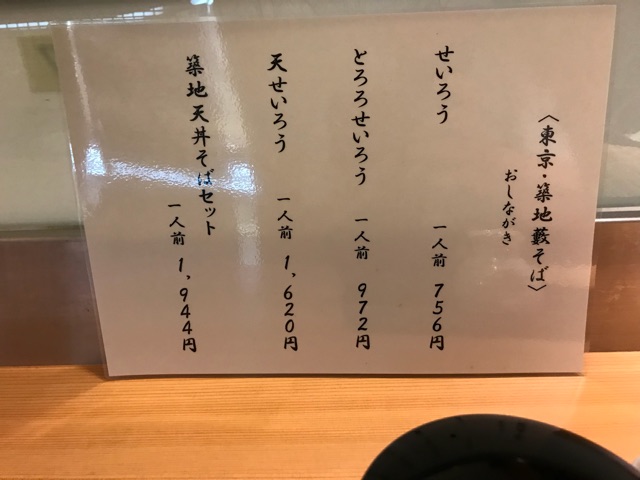 〈東京・築地藪そば〉
おしながき
せいろう 一人前 756円
とろろせいろう 一人前 972円
天せいろう 一人前 1,620円
築地天丼そばセット
一人前 1,944円